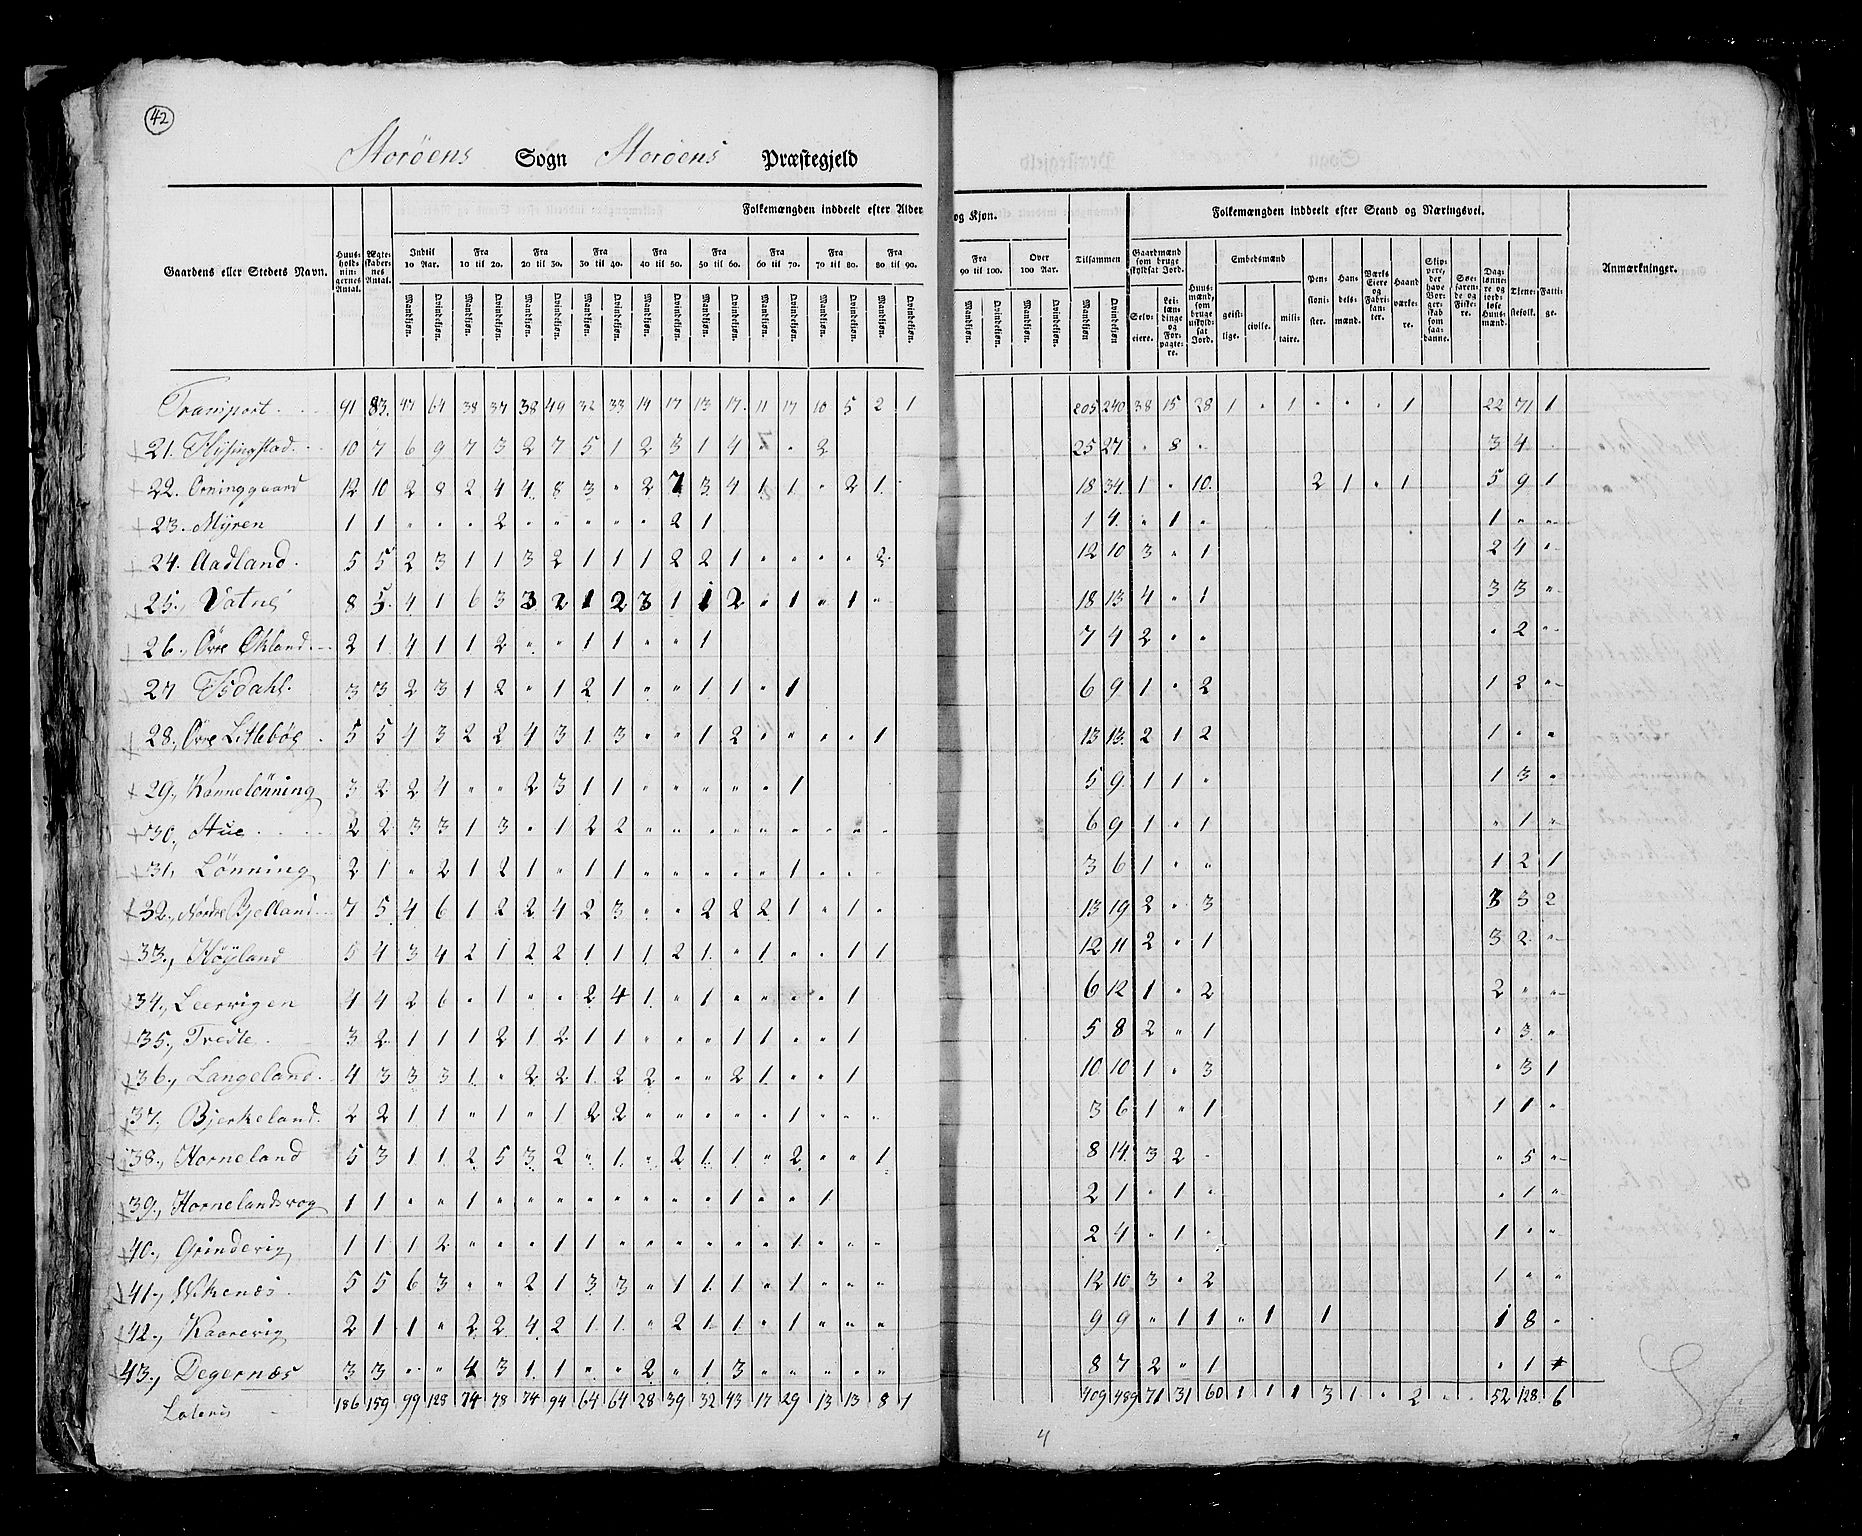 42
Storöens Sogn Storöens Præstegjeld
Folkemængden inddeelt efter Alder og Kjøn. Folkemængden inddeelt efter Stand og Næringsvei.
Gaardens eller Stedets Navn. Huusholdningernes Antal. Ægteskabernes Antal. Indtil 10 Aar. Fra 10 til 20. Fra 20 til 30. Fra 30 til 40. Fra 40 til 50. Fra 50 til 60. Fra 60 til 70. Fra 70 til 80. Fra 80 til 90. Fra 90 til 100. Over 100 Aar. Tilsammen Gaardmænd som bruge skyldsat Jord. Huusmænd, som bruge uskyldsat Jord. Embedsmænd Pensionister. Handelsmænd. Værks Eiere og Fabrikanter. Haandværkere. Skippere, der have Borgerskab som saadanne. Søefarende og Fiskere. DagLønnere og jordløse Huusmænd. Tjenestefolk. Fattige. Anmærkninger.
Mandkjøn. Qvindekjøn. Mandkjøn. Qvindekjøn. Mandkjøn. Qvindekjøn. Mandkjøn. Qvindekjøn. Mandkjøn. Qvindekjøn. Mandkjøn. Qvindekjøn. Mandkjøn. Qvindekjøn. Mandkjøn. Qvindekjøn. Mandkjøn. Qvindekjøn. Mandkjøn. Qvindekjøn. Mandkjøn. Qvindekjøn. Mandkjøn Qvindekjøn Selveiere. Leilændinge og Forpagtere. geistlige. civile. militaire.
Transport 91 83 47 64 38 37 38 49 32 33 14 17 13 17 11 17 10 5 2 1 205 240 38 15 28 1 " 1 " " " 1 22 71 1
21. Hysingstad 10 7 6 9 7 3 2 7 5 1 2 3 1 4 " " 2 25 27 " 8 " 3 4
22. Orninggaard 12 10 2 8 2 4 4 8 3 " 2 7 3 4 1 1 " 2 1 18 34 1 " 10 2 1 " 1 5 9 1
23. Myren 1 1 " " " 2 " " " " " 2 1 1 4 " 1 " 1 " "
24. Aadland 5 5 2 3 1 1 3 2 1 1 1 2 2 1 " " " " 2 12 10 3 " 1 2 4 "
25. Vatnes 8 5 4 1 6 3 3 2 1 2 3 1 1 2 " 1 " 1 " 18 13 4 " 1 3 3 "
26. Øvre Økland 2 1 4 1 1 2 " " 1 1 " " 1 7 4 2 " " " 2 "
27 Isdahl 3 3 2 3 1 2 " 1 2 1 " " 1 1 " 1 6 9 1 " 2 1 2 "
28. Øvre Litlebøe 5 5 4 3 2 2 4 3 1 3 " " 1 2 " " " " 1 13 13 2 1 2 1 " "
29. Kannelönning 3 2 2 4 " " 2 3 1 1 " " " " " 1 5 9 1 1 " 1 3 "
30. Hue 2 2 3 3 1 3 " 1 2 2 " " " " " " " " " 6 9 1 " 1 " 1 "
31. Lönning 2 1 " 2 1 2 1 " 1 1 " " " " " 1 " " " 3 6 1 " " 1 2 1
32. Nordre Bjelland 7 5 4 6 1 2 2 4 2 3 " " 2 2 2 1 " 1 " 13 19 2 " 3 3 3 2
33. Höyland 5 4 3 4 2 1 2 2 1 1 1 2 1 " 1 " " 1 1 12 11 2 " 1 3 2 "
34. Leervigen 4 4 2 6 " 1 " " 2 4 1 " 1 " " " " 1 6 12 1 " 2 2 " "
35. Tredte 3 2 1 1 1 2 1 2 1 1 " " " 1 1 " " 1 5 8 2 " 1 " 3 "
36. Langeland 4 3 3 3 1 " 2 2 1 2 2 " " 2 1 " " 1 10 10 1 " 3 " 3 1
37. Bjerkeland 2 2 1 1 " 1 " 1 2 2 " " " " " 1 " " " 3 6 1 " 1 1 1 "
38. Horneland 5 3 1 1 2 5 3 2 " 1 " 2 1 1 " 2 " " 1 8 14 3 2 " " 5 "
39. Hornelandsvog 1 1 " " 1 " " " " " " " " 1 " " 1 2 1 " 1 " " 1 "
40. Grindevig 1 1 1 2 " " " 1 1 " " " " " " 1 " " " 2 4 " 1 " 1 " "
41. Vikenæs 5 5 6 3 " " 2 1 3 3 " 1 1 1 " 1 " " " 12 10 3 " 2 1 " "
42. Kaarevig 2 1 1 " 2 2 4 2 1 1 " 2 1 1 " 1 " " " 9 9 " 1 1 " 1 1 1 8 "
43. Degernæs 3 3 " " 4 3 1 1 " " 2 " 1 3 " " " " " 8 7 2 " 1 " 1
Lateris 186 159 99 128 74 78 74 94 64 64 28 39 32 43 17 29 13 13 8 1 409 489 71 31 60 1 1 1 3 1 " 2 " " 52 128 6
4